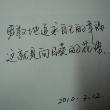 勇敢地追求自己的幸福
这就是向日葵的花语
2010.2.12.